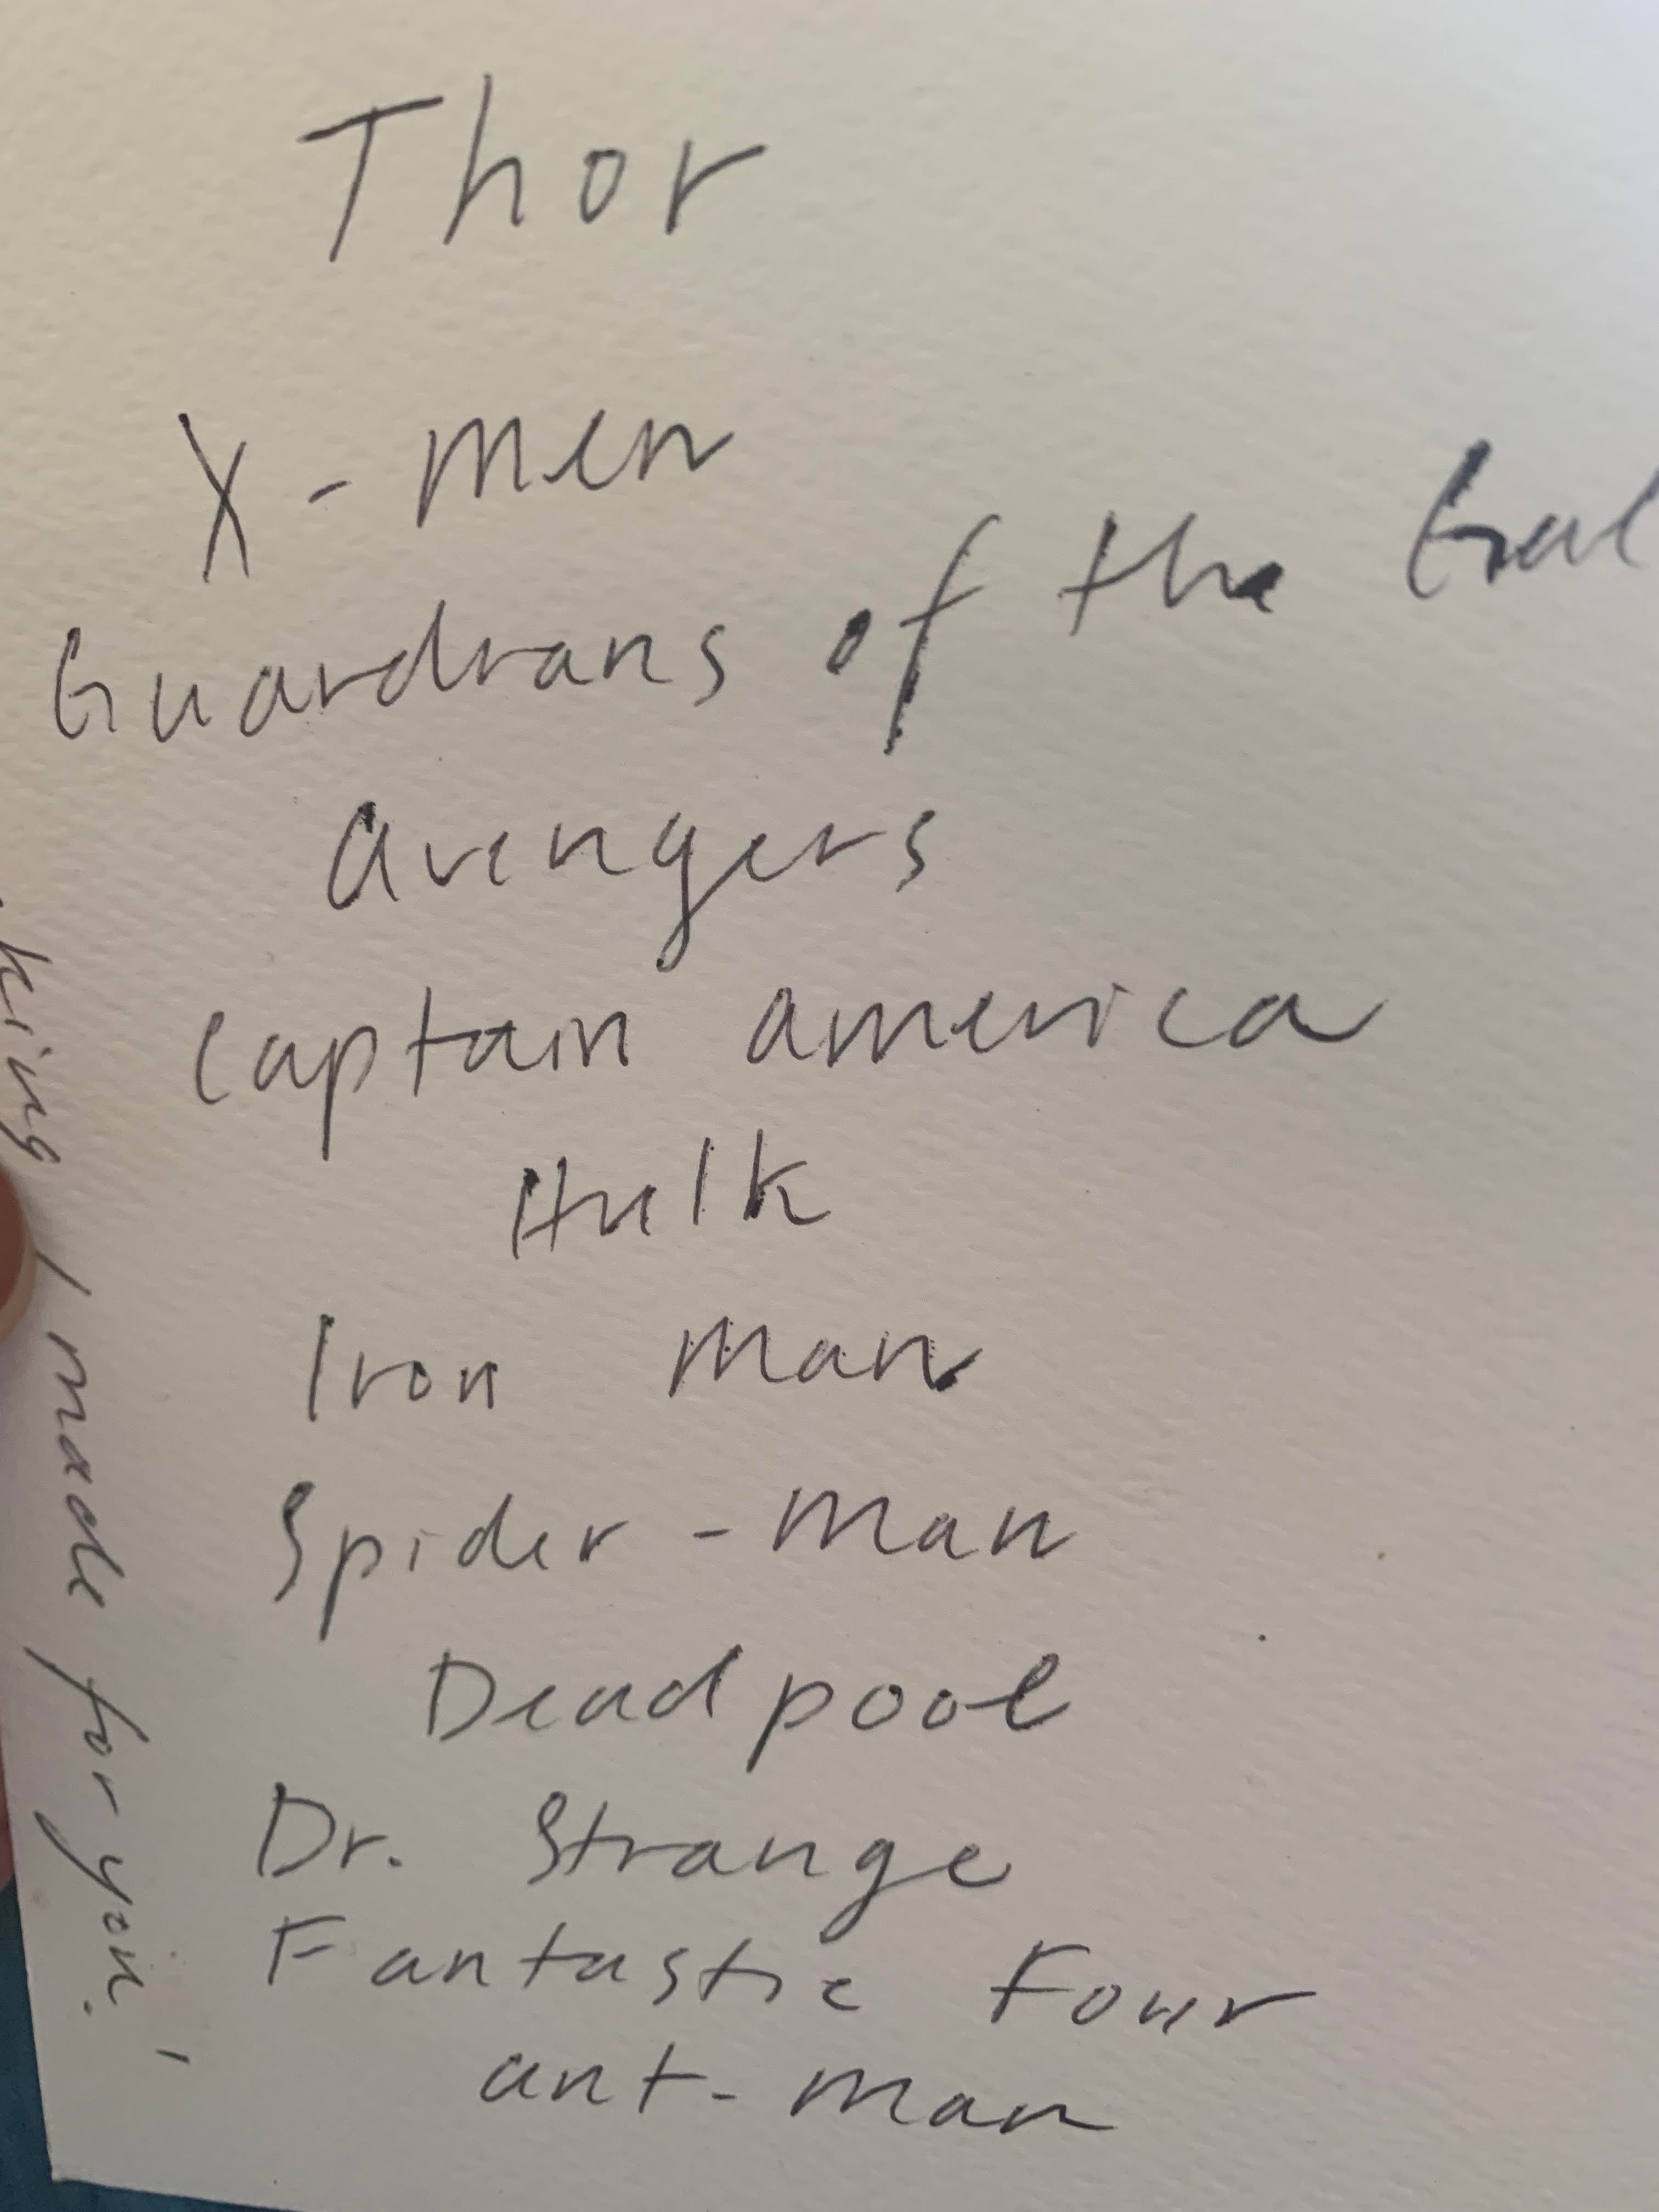 Thor
X-men
Guardians of the Gal
avengers
captain america
Hulk
Iron man
Spider-man
Deadpool
Dr. Strange
Fantastic Four
ant-man
king I made for you!